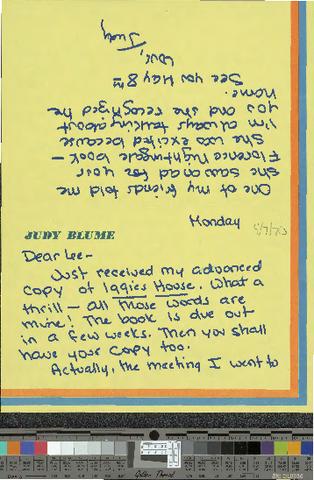 Monday
JUDY BLUME
Dear Lee-
Just received my advanced
copy of Iggies House. What a
thrill - all those words are
mine! The book is due out
in a few weeks. Then you shall
have your copy too.
Actually, the meeting I went to
One of my friends told me
she saw an ad for your
Florence Nightingale book -
she was excited because
I'm always talking about
you and she recognized the
name.
See you May 8th
Love,
Judy